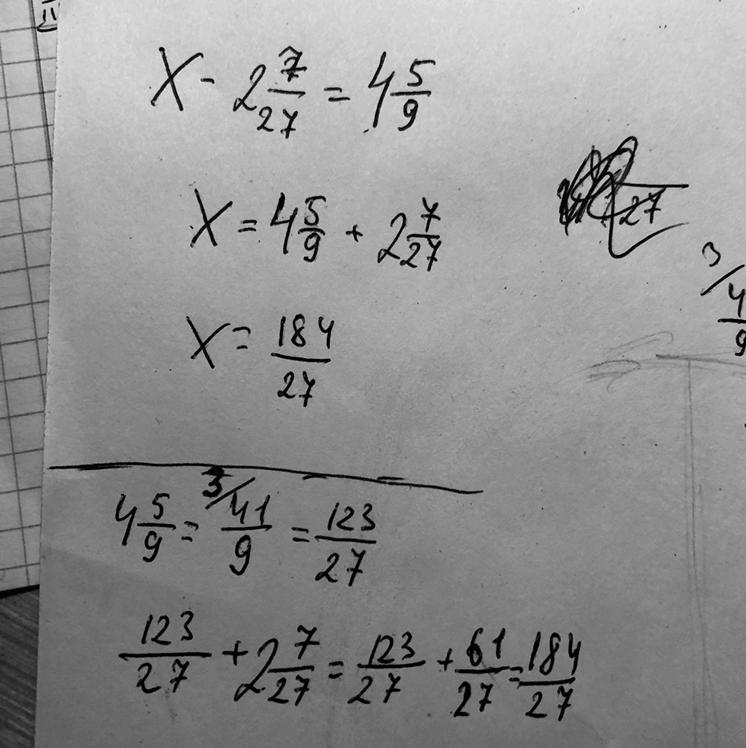 X - 2 7/27 = 4 5/9
X = 4 5/9 + 2 7/27
X = 184/27
27
3/
4
9
4 5/9 = 3/ 41/9 = 123/27
123/27 + 2 7/27 = 123/27 + 61/27 = 184/27